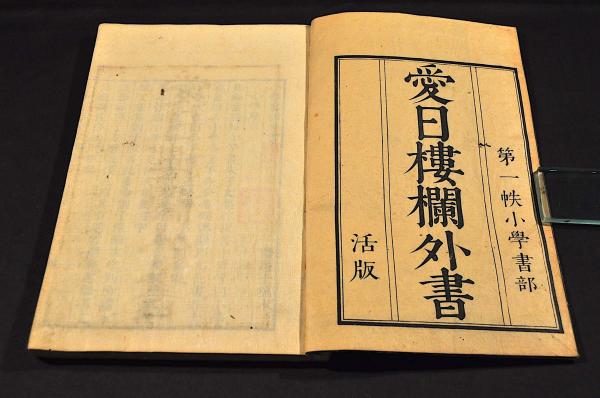 第一帙小學書部
愛日樓欄外書
活版